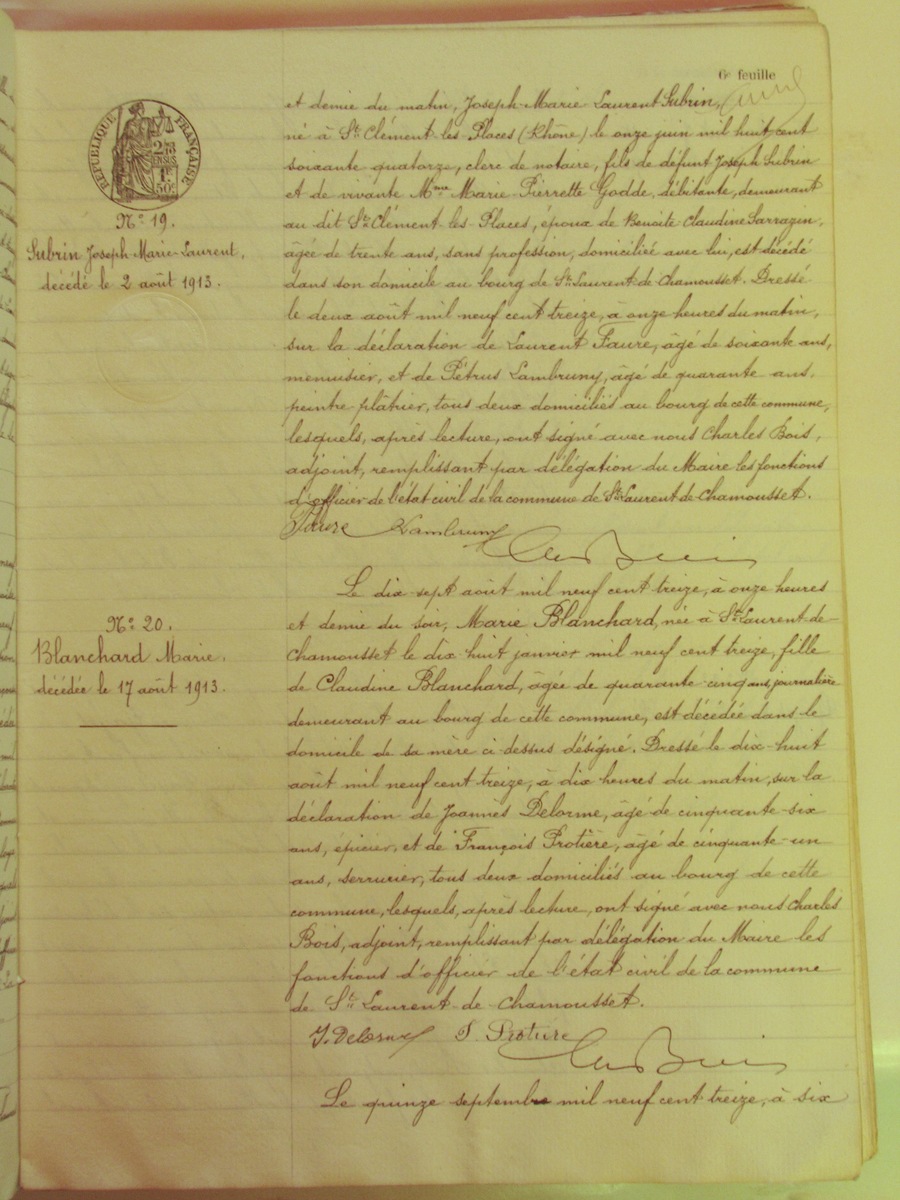 6e feuille
RÉPUBLIQUE FRANÇAISE
N° 19.
Subrin Joseph-Marie-Laurent,
décédé le 2 août 1913.
et demie du matin, Joseph-Marie-Laurent Subrin,
né à St Clément-les-Places (Rhône) le onze juin mil huit cent
soixante quatorze, clerc de notaire, fils de défunt Joseph Subrin
et de vivante Mme Marie-Pierrette Godde, débitante, demeurant
au dit St Clément-les-Places, époux de Benoite-Claudine Sarrazin,
âgée de trente ans, sans profession, domiciliée avec lui, est décédé
dans son domicile au bourg de St Laurent de Chamousset. Dressé
le deux août mil neuf cent treize, à onze heures du matin,
sur la déclaration de Laurent Faure, âgé de soixante ans,
menuisier, et de Pétrus Lambruny, âgé de quarante ans,
peintre-plâtrier, tous deux domiciliés au bourg de cette commune,
lesquels, après lecture, ont signé avec nous Charles Bois,
adjoint, remplissant par délégation du Maire les fonctions
d'officier de l'état civil de la commune de St Laurent de Chamousset.
Faure Lambruny
Ch Bois
N° 20.
Blanchard Marie.
décédée le 17 août 1913.
Le dix-sept août mil neuf cent treize, à onze heures
et demie du soir, Marie Blanchard, née à St Laurent-de-
Chamousset le dix-huit janvier mil neuf cent treize, fille
de Claudine Blanchard, âgée de quarante-cinq ans, journalière
demeurant au bourg de cette commune, est décédée dans le
domicile de sa mère ci-dessus désigné. Dressé le dix-huit
août mil neuf cent treize, à dix heures du matin, sur la
déclaration de Joannès Delorme, âgé de cinquante-six
ans, épicier, et de François Protière, âgé de cinquante-un
ans, serrurier, tous deux domiciliés au bourg de cette
commune, lesquels, après lecture, ont signé avec nous Charles
Bois, adjoint, remplissant par délégation du Maire les
fonctions d'officier de l'état civil de la commune
de St Laurent de Chamousset.
J. Delorme F. Protière
Ch Bois
Le quinze septembre mil neuf cent treize, à six